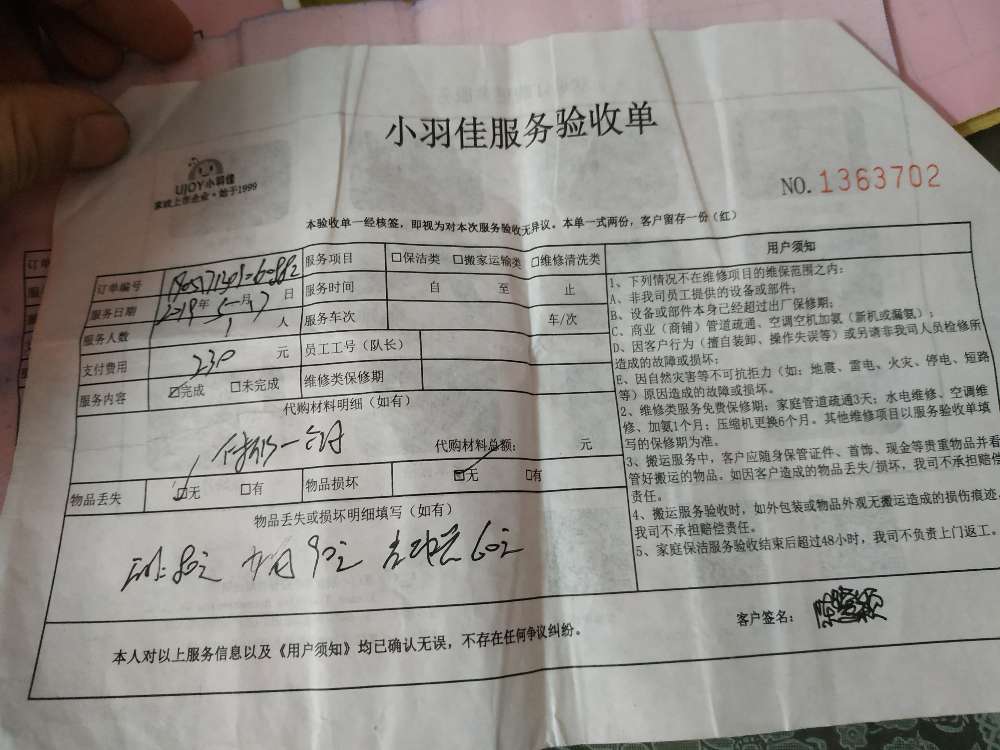 小羽佳服务验收单
UJOY小羽佳
家政上市企业·始于1999
NO.1363702
本验收单一经核签，即视为对本次服务验收无异议。本单一式两份，客户留存一份（红）
订单编号
服务项目 □保洁类 □搬家运输类 □维修清洗类
服务日期 2019年5月17日
服务时间 自 至 止
服务人数 1 人
服务车次 车/次
支付费用 230 元
员工工号（队长）
服务内容 ☑完成 □未完成
维修类保修期
代购材料明细（如有）
代购材料总额： 元
物品丢失 ☑无 □有
物品损坏 ☑无 □有
物品丢失或损坏明细填写（如有）
80元 90元 60元
本人对以上服务信息以及《用户须知》均已确认无误，不存在任何争议纠纷。
用户须知
1、下列情况不在维修项目的维保范围之内：
A、非我司员工提供的设备或部件；
B、设备或部件本身已经超过出厂保修期；
C、商业（商铺）管道疏通、空调空机加氨（新机或漏氨）；
D、因客户行为（擅自装卸、操作失误等）或另请非我司人员检修所
造成的故障或损坏；
E、因自然灾害等不可抗拒力（如：地震、雷电、火灾、停电、短路
等）原因造成的故障或损坏。
2、维修类服务免费保修期：家庭管道疏通3天；水电维修、空调维
修、加氨1个月；压缩机更换6个月。其他维修项目以服务验收单填
写的保修期为准。
3、搬运服务中，客户应随身保管证件、首饰、现金等贵重物品并看
管好搬运的物品。如因客户造成的物品丢失/损坏，我司不承担赔偿
责任。
4、搬运服务验收时，如外包装或物品外观无搬运造成的损伤痕迹，
我司不承担赔偿责任。
5、家庭保洁服务验收结束后超过48小时，我司不负责上门返工。
客户签名：